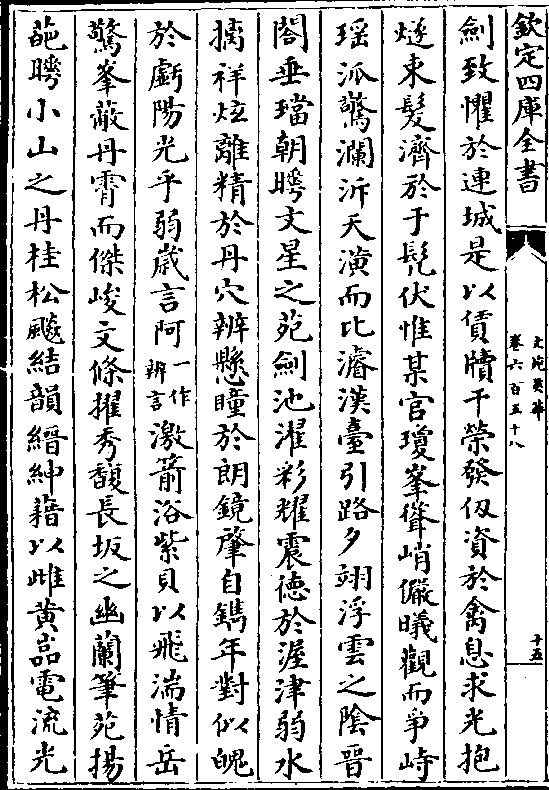 欽定四庫全書
文苑英華
卷六百五十八
十五
劍致懼於連城是以債牘干榮發伋資於禽息求光抱
燧束髮濟於于髠伏惟某官瓊峯聳峭儼曦觀而爭峙
瑶泒驚瀾泝天潢而比濬漢臺引路夕翊浮雲之陰晉
閣垂璫朝聘文星之苑劍池濯彩耀震德於渥津弱水
摛祥炫離精於丹穴辨懸瞳於朗鏡肇自鐫年對似魄
於虧陽光乎弱歳言阿一作辨言激箭浴紫貝以飛湍情岳
驚峯蔽丹霄而傑峻文條擢秀馥長坂之幽蘭筆苑揚
葩聘小山之丹桂松飈結韻縉紳藉以雌黄嵓電流光